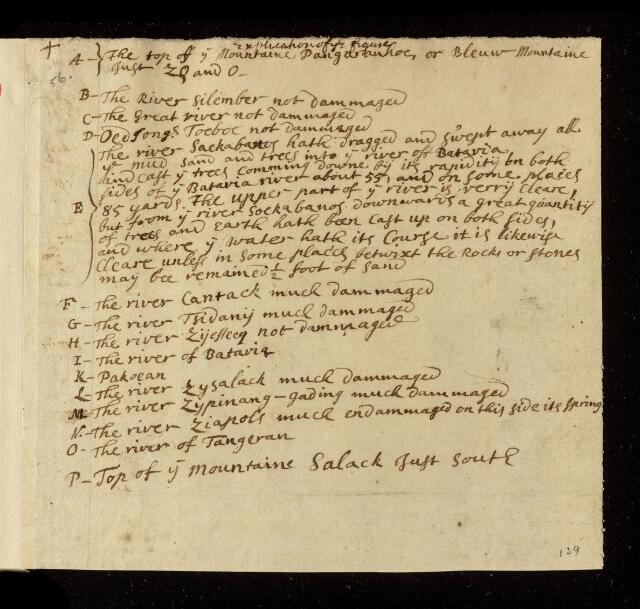 +
Explication of yͤ figure
A-} The top off yͤ Mountaine Pangarankoe, or Bleuw Mountaine
Just ZO and O-
56.
B- The River Silember not dammaged
C- The Great river not dammaged
D- Oed Jongs Toeboe not dammaged
The river Sackabanos hath dragged and swept away all
yͤ mud sand and trees into yͤ river of Batavia
and cast yͤ trees comming downe by its rapidity on both
sides of yͤ Batavia river about 55, and on some places
E { 85 yards. The upper part of yͤ river is verry cleare,
but from yͤ river Sockabanos downwards a great quantity
of trees and Earth hath been cast up on both sides,
and where yͤ water hath its Course it is likewise
Cleare unless in some places betwixt the Rocks or stones
may bee remained ½ foot of sand
F- The river Cantack much dammaged
G- The river Tsidanij much dammaged
H- The river Zijesseeq not dammaged
I- The river of Batavia
K- Pakoean
L- The river Zysalack much dammaged
M- The river Zypinang-gading much dammaged
N- The river Ziapols much endammaged on this side its Spring
O- The river of Tangeran
P- Top of yͤ Mountaine Salack Just South
139